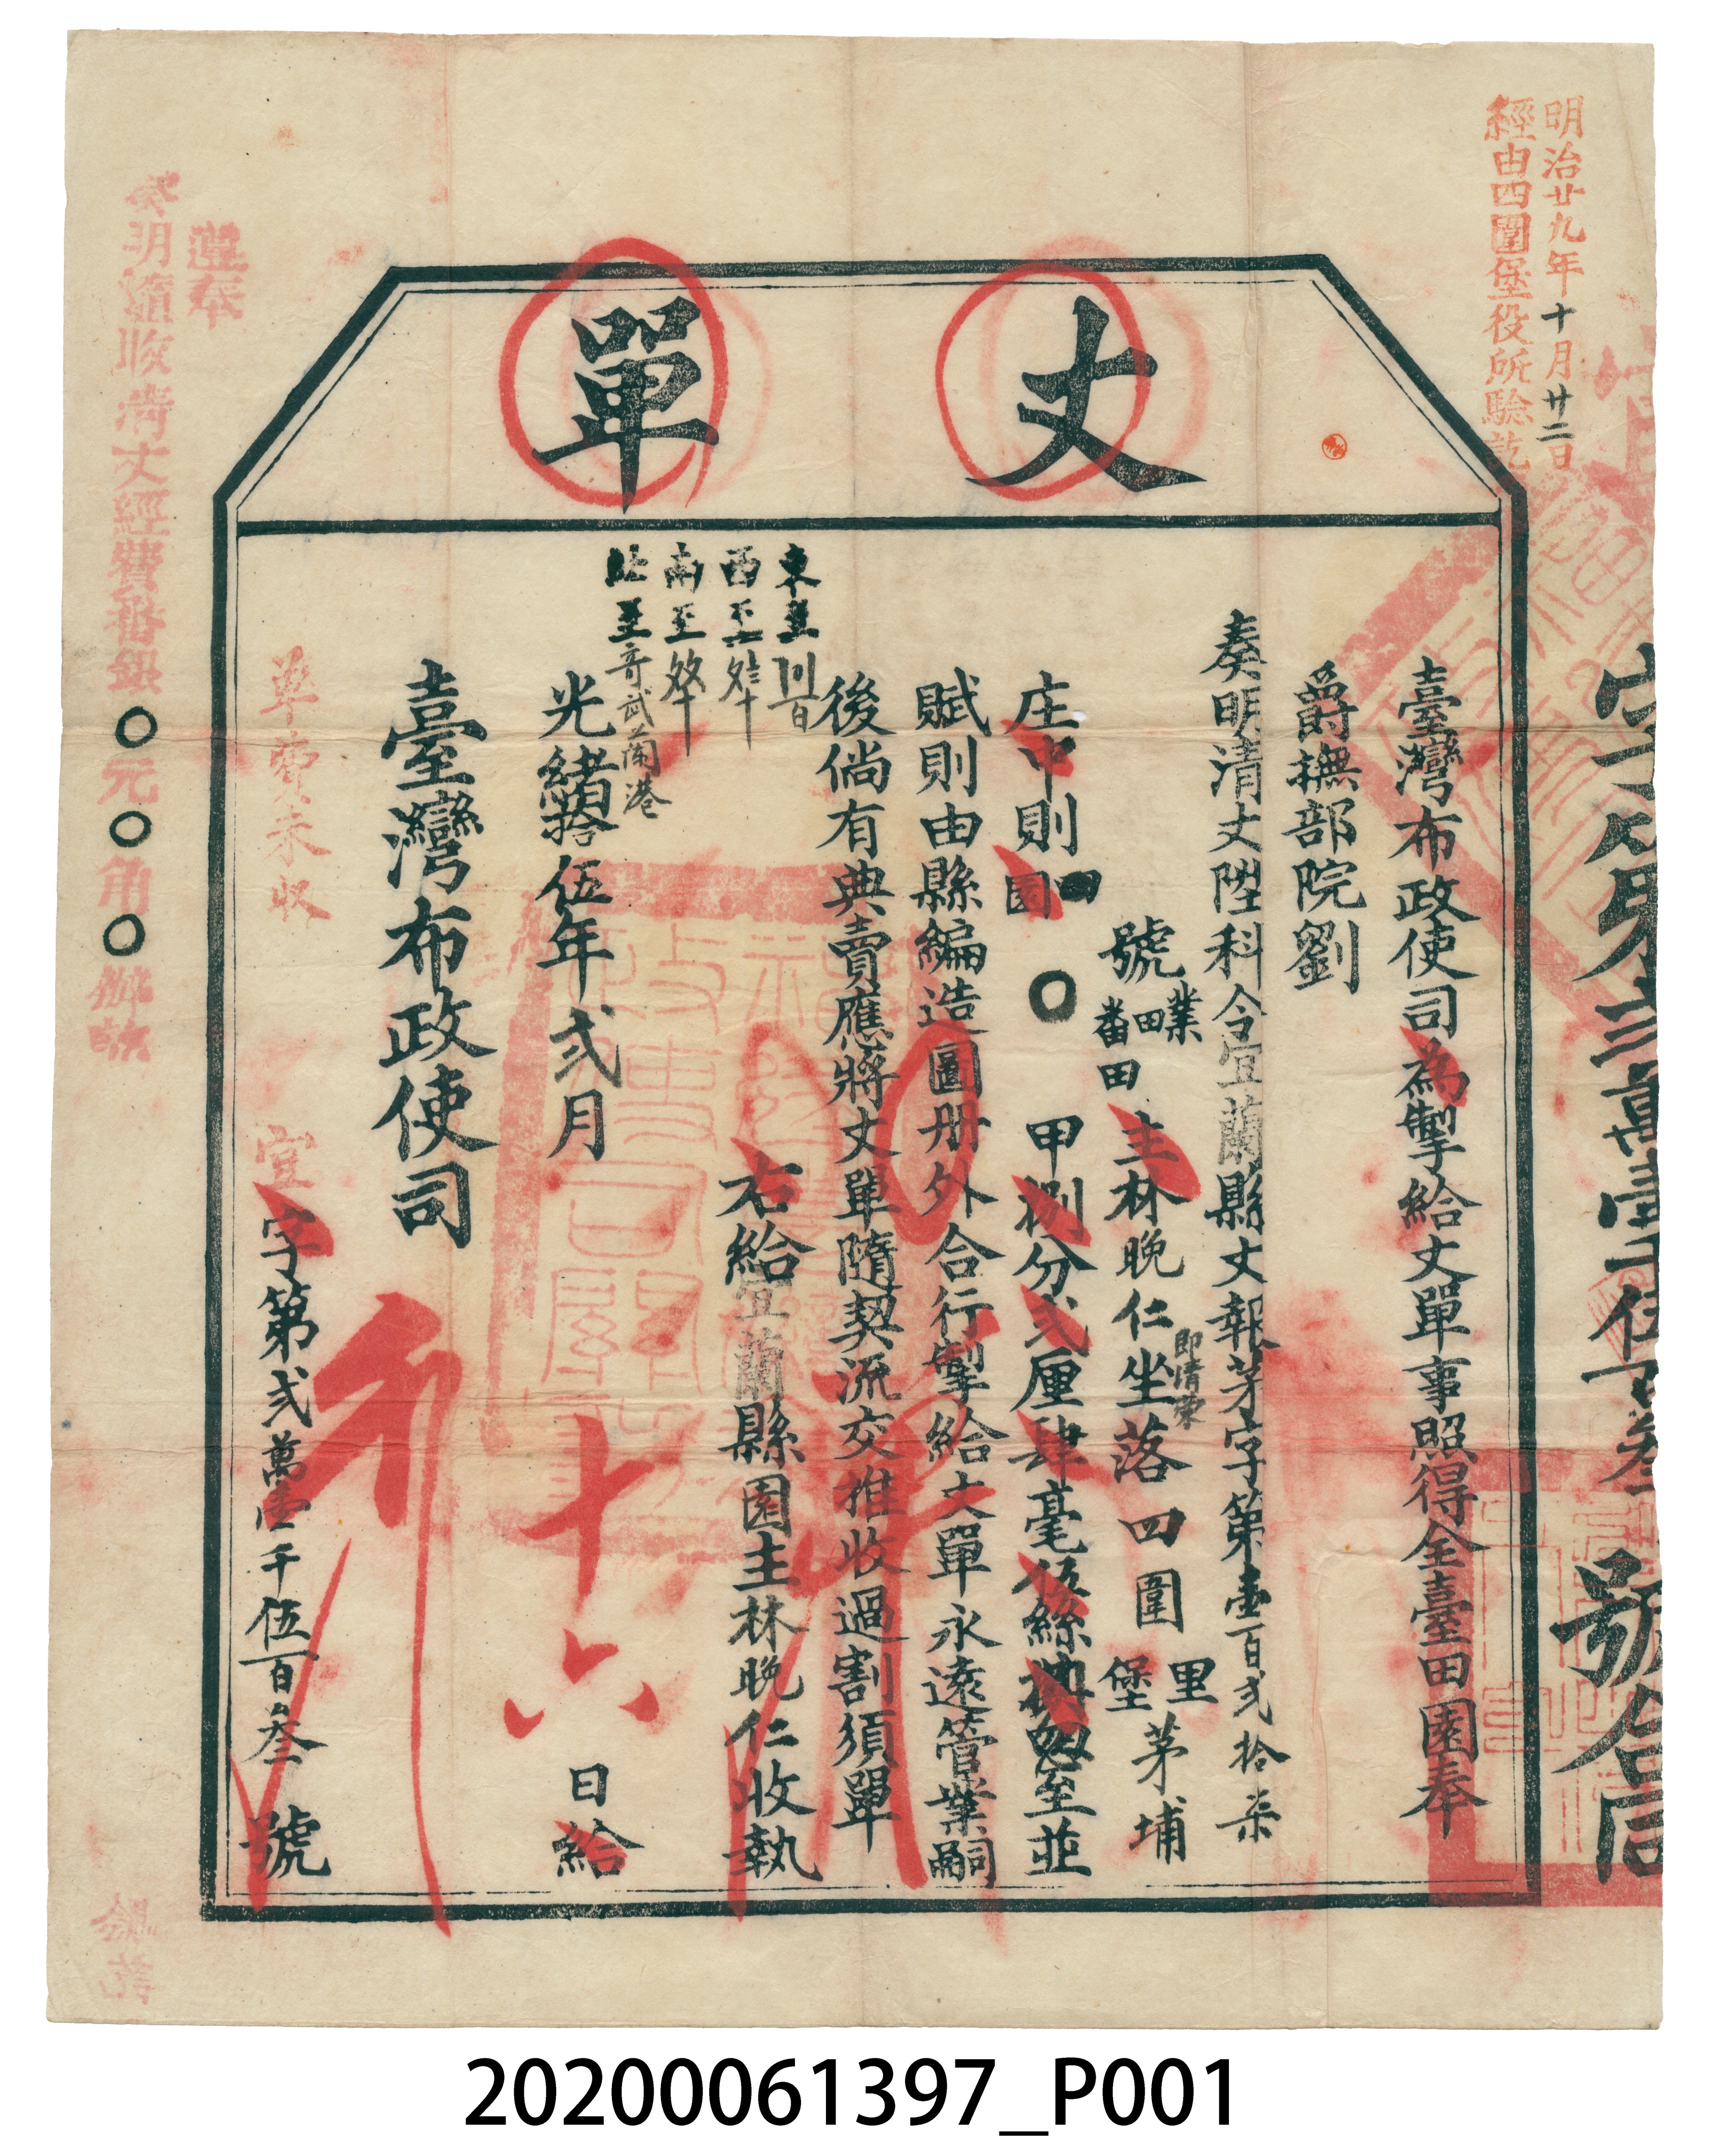 明治廿九年十月廿二日
經由四圍堡役所驗訖
丈單
臺灣布政使司為掣給丈單事照得全臺田園奉
爵撫部院劉
奏明清丈陞科令宜蘭縣丈報茅字第壹百弍拾柒
號業田番田主林晚仁坐落四圍里堡茅埔
即情東
庄中則田園〇甲捌分弍厘肆毫伍絲
忽至並
賦則由縣編造圖册外合行掣給丈單永遠管業嗣
後倘有典賣應將丈單隨契流交推收過割須單
右給宜蘭縣園主林晚仁收執
東至
西至
南至
北至奇武蘭港
光緒拾伍年弍月十六日給
臺灣布政使司
宜字第弍萬壹千伍百叁號
單費未收
遵奉
奏明隨收清丈經費番銀〇元〇角〇辦訖
字第弍萬壹千伍百叁號合同
20200061397_P001